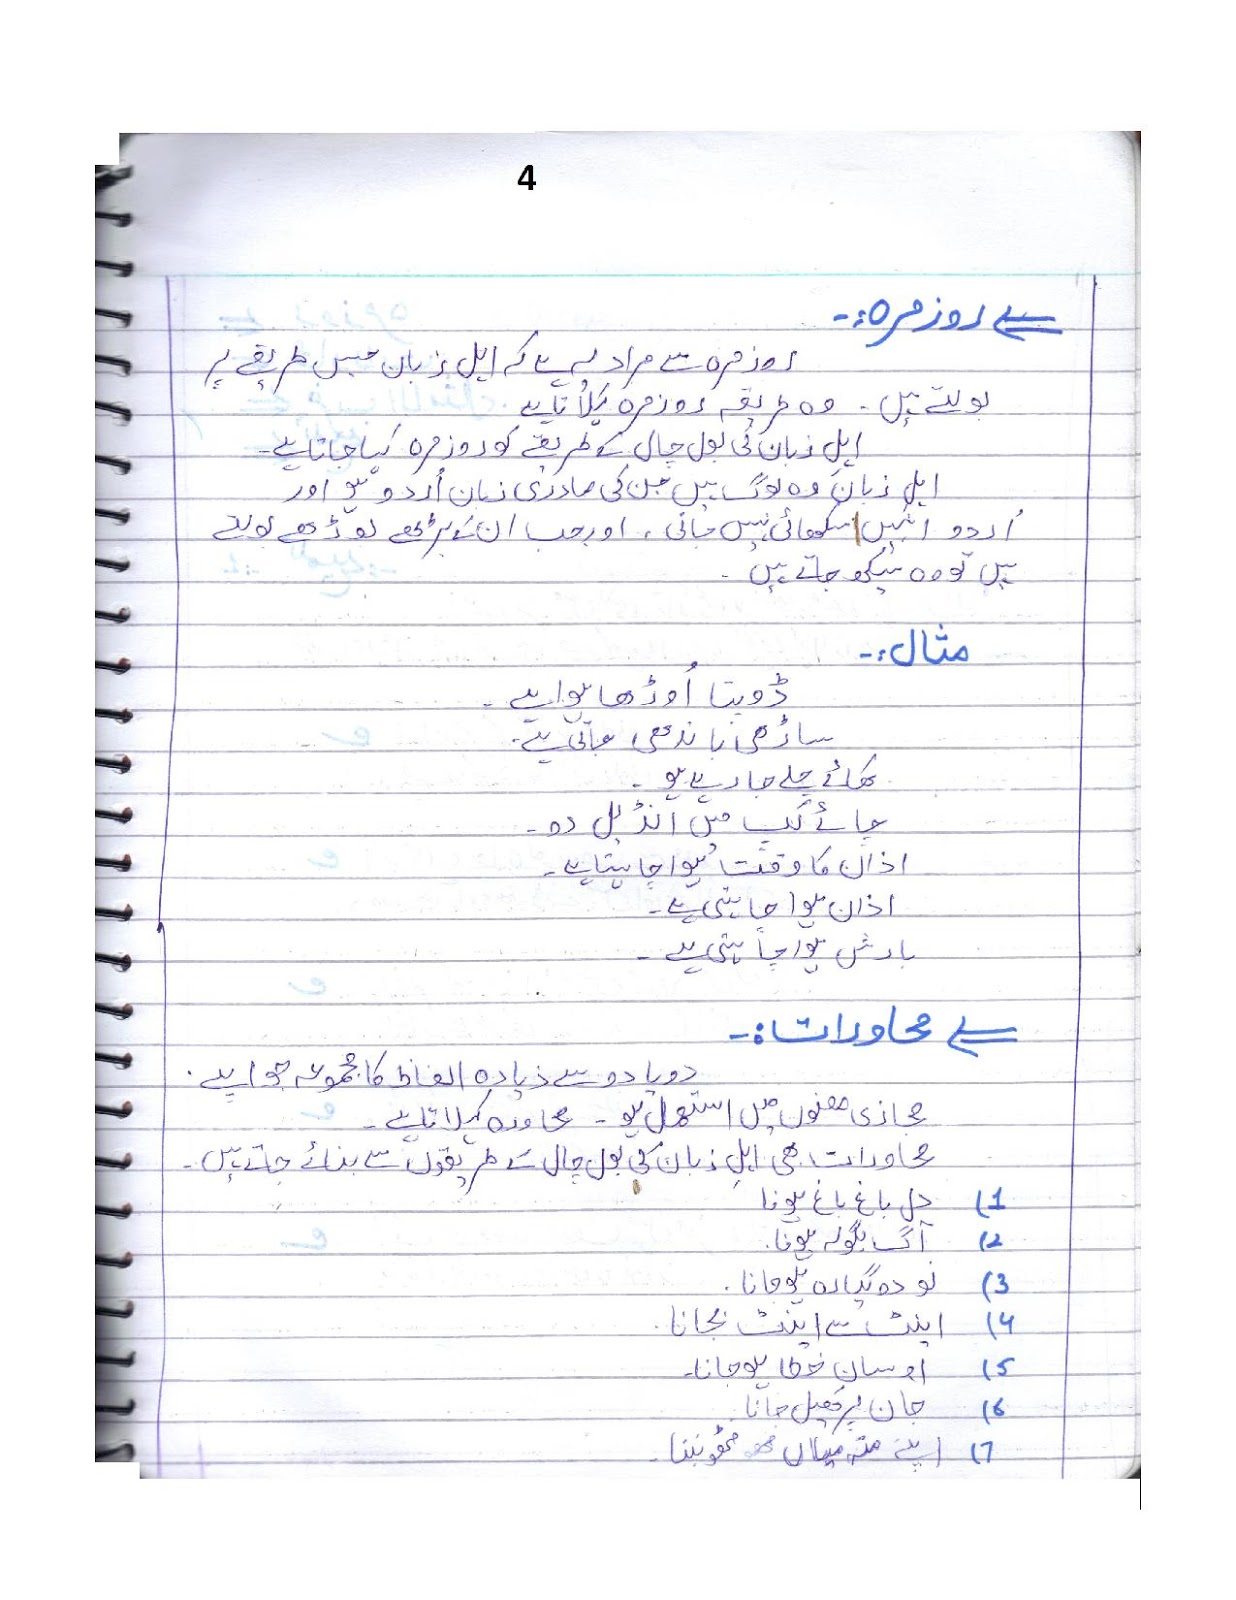 4
روزمرہ:-
روزمرہ سے مراد یہ ہے کہ اہل زبان جس طریقے پر
بولتے ہیں۔ وہ طریقہ روزمرہ کہلاتا ہے
اہل زبان کی بول چال کے طریقے کو روزمرہ کہا جاتا ہے۔
اہل زبان وہ لوگ ہیں جن کی مادری زبان اُردو ہو اور
اُردو انہیں سکھائی نہیں جاتی، اور جب ان کے بڑھے بوڑھے بولتے
ہیں تو وہ سیکھ جاتے ہیں۔
مثال:-
ڈوپتا اُوڑھا ہوا ہے۔
ساڑھی باندھی جاتی ہے۔
کھائے چلے جا رہے ہو۔
چائے کپ میں انڈیل دو۔
اذان کا وقت ہوا چاہتا ہے۔
اذان ہوا چاہتی ہے۔
بارش ہوا چاہتی ہے۔
محاورات:-
دو یا دو سے زیادہ الفاظ کا مجموعہ جو اپنے
مجازی معنوں میں استعمال ہو۔ محاورہ کہلاتا ہے۔
محاورات بھی اہل زبان کی بول چال کے طریقوں سے بنائے جاتے ہیں۔
1) دل باغ باغ ہونا
2) آگ بگولہ ہونا۔
3) نو دو گیارہ ہو جانا۔
4) اینٹ سے اینٹ بجانا۔
5) اوسان خطا ہو جانا۔
6) جان پر کھیل جانا۔
7) اپنے منہ میاں مٹھو بننا۔